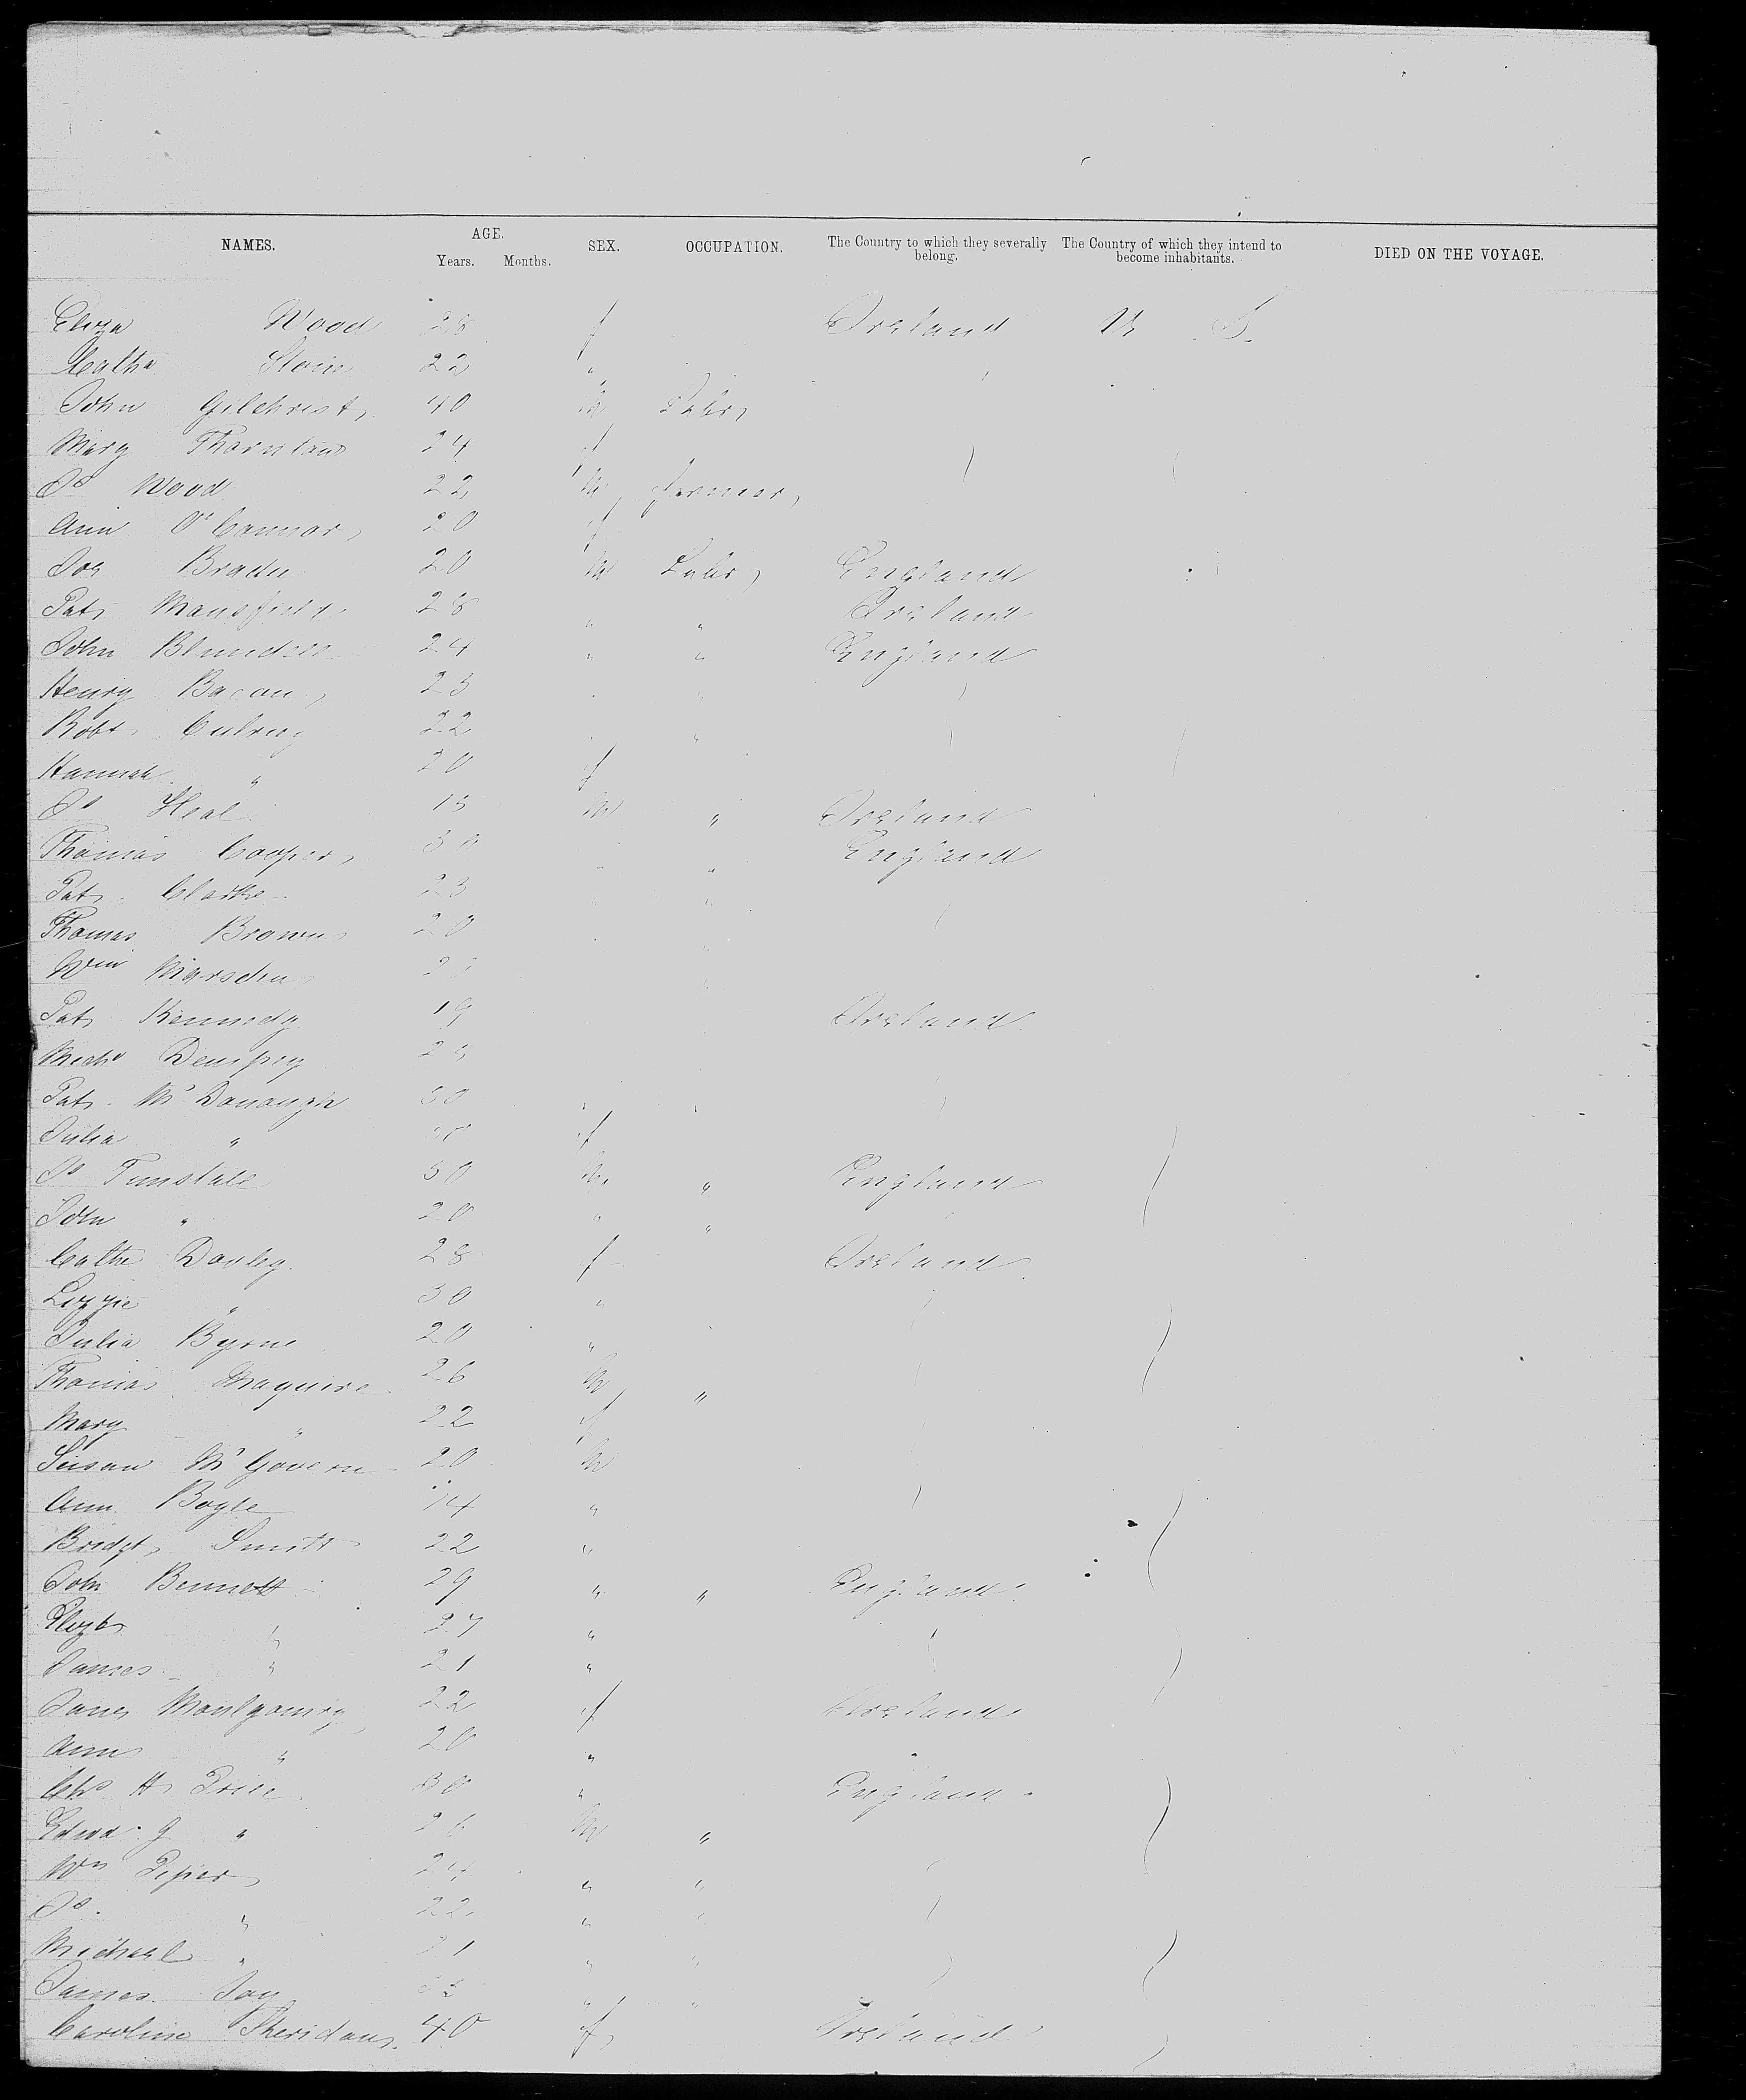 NAMES. AGE. Years. Months. SEX. OCCUPATION. The Country to which they severally belong. The Country of which they intend to become inhabitants. DIED ON THE VOYAGE.
Eliza Wood 28 f Ireland U S.
Cathe 22 "
John Gilchrist, 40 M Labr,
Mary Thornton 24 f
Js Wood 22 M farmer,
Ann O'Connor, 20 f
Jos 20 M Labr, England
Pat, Mansfield, 28 " " Ireland
John 24 " " England
Henry Bacon, 23 "
Robt. 22 "
Hannah " 20 f
Js Heal 15 M " Ireland
Thomas Cooper, 30 " England
Pat. Clarke 23 "
Thomas Brown 20
Wm Marsden
Pat, Kennedy 19 Ireland
Michl Dempsey
Pat. McDonough 30
Julia " f
Js Tunstall 50 M, " England
John " 20 " "
Cathe Danley. 28 f Ireland
Lizzie " 30 "
Julia Byrne 20 "
Thomas Maguire 26 M "
Mary " 22 f
Susan McGovern 20 M
Ann Boyle 14 "
Bridgt, Smith 22 "
John Bennett 29 " " England
Elizb, " 27 "
James " 21 "
Montgomery 22 f Ireland
Ann " 20 "
H, Price 30 " England
Edwd. G " 26 M "
Wm 24 " "
Js. " 22 " "
Michael " 21 " "
James " "
Caroline Sheridan, 40 f Ireland